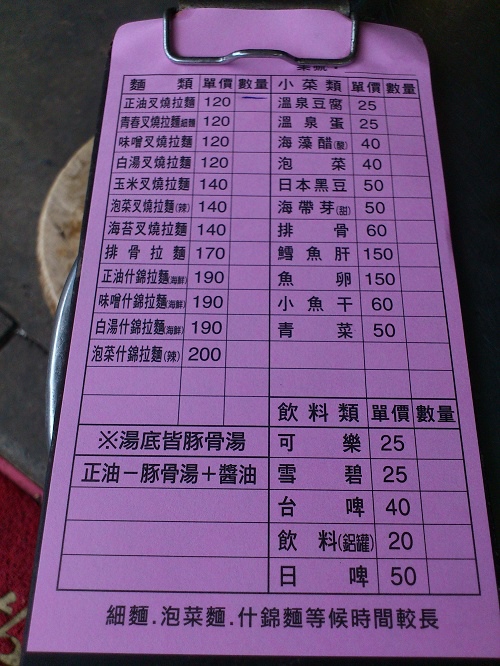 麵類 單價 數量 小菜類 單價 數量
正油叉燒拉麵 120 溫泉豆腐 25
青春叉燒拉麵細麵 120 溫泉蛋 25
味噌叉燒拉麵 120 海藻醋(酸) 40
白湯叉燒拉麵 120 泡菜 40
玉米叉燒拉麵 140 日本黑豆 50
泡菜叉燒拉麵(辣) 140 海帶芽(甜) 50
海苔叉燒拉麵 140 排骨 60
排骨拉麵 170 鱈魚肝 150
正油什錦拉麵(海鮮) 190 魚卵 150
味噌什錦拉麵(海鮮) 190 小魚干 60
白湯什錦拉麵(海鮮) 190 青菜 50
泡菜什錦拉麵(辣) 200
飲料類 單價 數量
※湯底皆豚骨湯 可樂 25
正油－豚骨湯＋醬油 雪碧 25
台啤 40
飲料(鋁罐) 20
日啤 50
細麵.泡菜麵.什錦麵等候時間較長